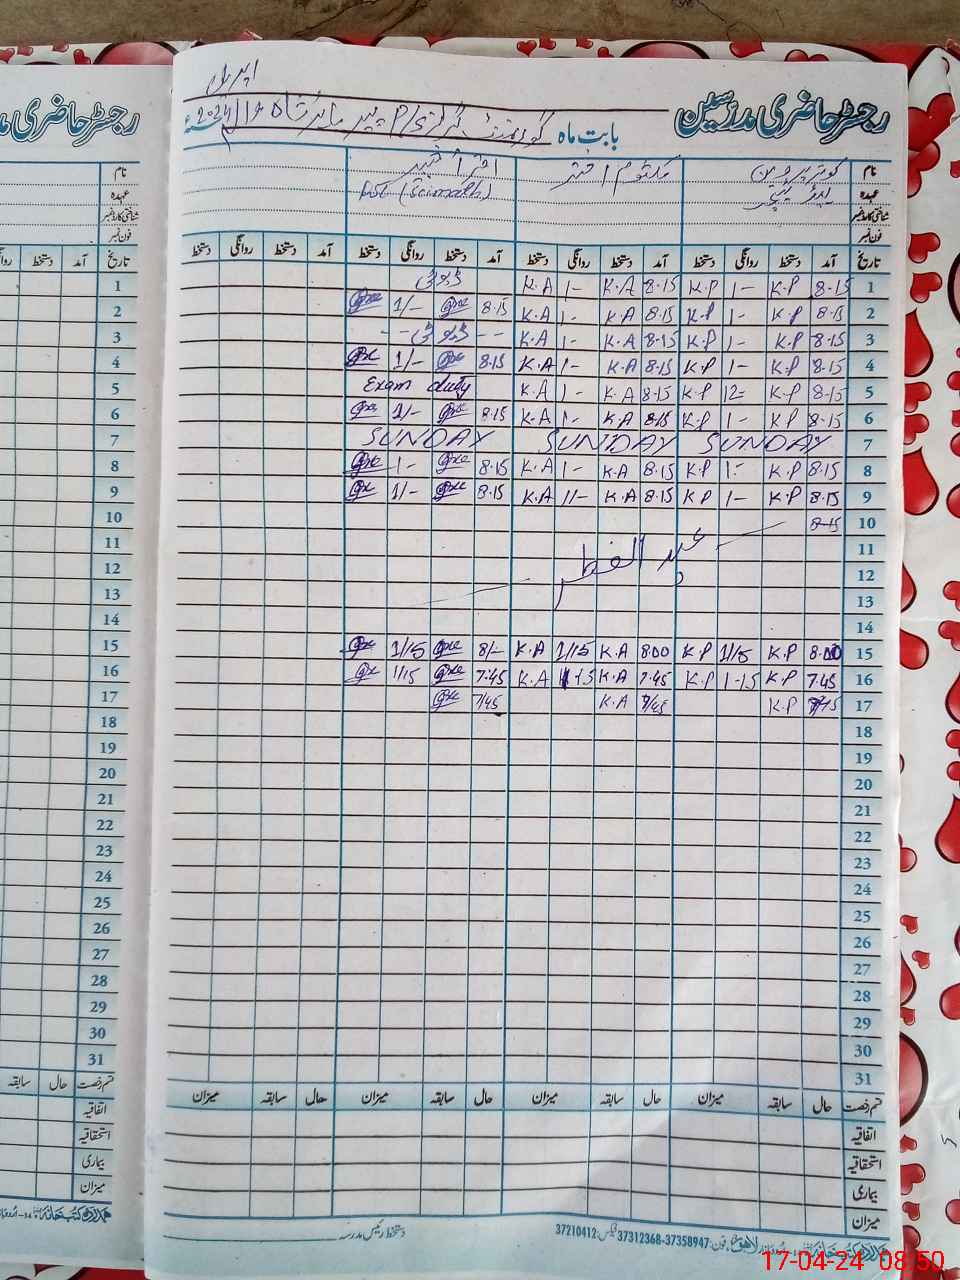 اپریل
رجسٹر حاضری مدرسین
بابت ماہ
2024
نام کوثر پروین کلثوم اختر
عہدہ PST (Sci math)
شناختی کارڈ نمبر
فون نمبر
تاریخ آمد دستخط روانگی دستخط آمد دستخط روانگی دستخط آمد دستخط روانگی دستخط آمد دستخط روانگی دستخط
1 8.15 K.P 1- K.P 8.15 K.A 1- K.A ڈیوٹی
2 8.15 K.P 1- K.P 8.15 K.A 1- K.A 8.15 1/-
3 8.15 K.P 1- K.P 8.15 K.A 1- K.A -- ڈیوٹی --
4 8.15 K.P 1- K.P 8.15 K.A 1- K.A 8.15 1/-
5 8.15 K.P 12= K.P 8.15 K.A 1- K.A Exam duty
6 8.15 K.P 1- K.P 8.15 K.A 1- K.A 8.15 1/-
7 SUNDAY SUNDAY SUNDAY
8 8.15 K.P 1:- K.P 8.15 K.A 1- K.A 8.15 1-
9 8.15 K.P 1- K.P 8.15 K.A 1/- K.A 8.15 1/-
10 8-15
11
عید الفطر
12
13
14
15 8.00 K.P 1/15 K.P 8.00 K.A 1/15 K.A 8/- 1/15
16 7.45 K.P 1-15 K.P 7.45 K.A 1-15 K.A 7.45 1/15
17 7/45 K.P 7/45 K.A 7/45
18
19
20
21
22
23
24
25
26
27
28
29
30
31
قسم رخصت حال سابقہ میزان حال سابقہ میزان حال سابقہ میزان حال سابقہ میزان
اتفاقیہ
استحقاقیہ
بیماری
میزان
دستخط رئیس مدرسہ
فون: 37358947-37312368 فیکس: 37210412
رجسٹر حاضری
نام
عہدہ
شناختی کارڈ نمبر
فون نمبر
تاریخ آمد دستخط
1
2
3
4
5
6
7
8
9
10
11
12
13
14
15
16
17
18
19
20
21
22
23
24
25
26
27
28
29
30
31
قسم رخصت حال سابقہ
اتفاقیہ
استحقاقیہ
بیماری
میزان
17-04-24 08:50